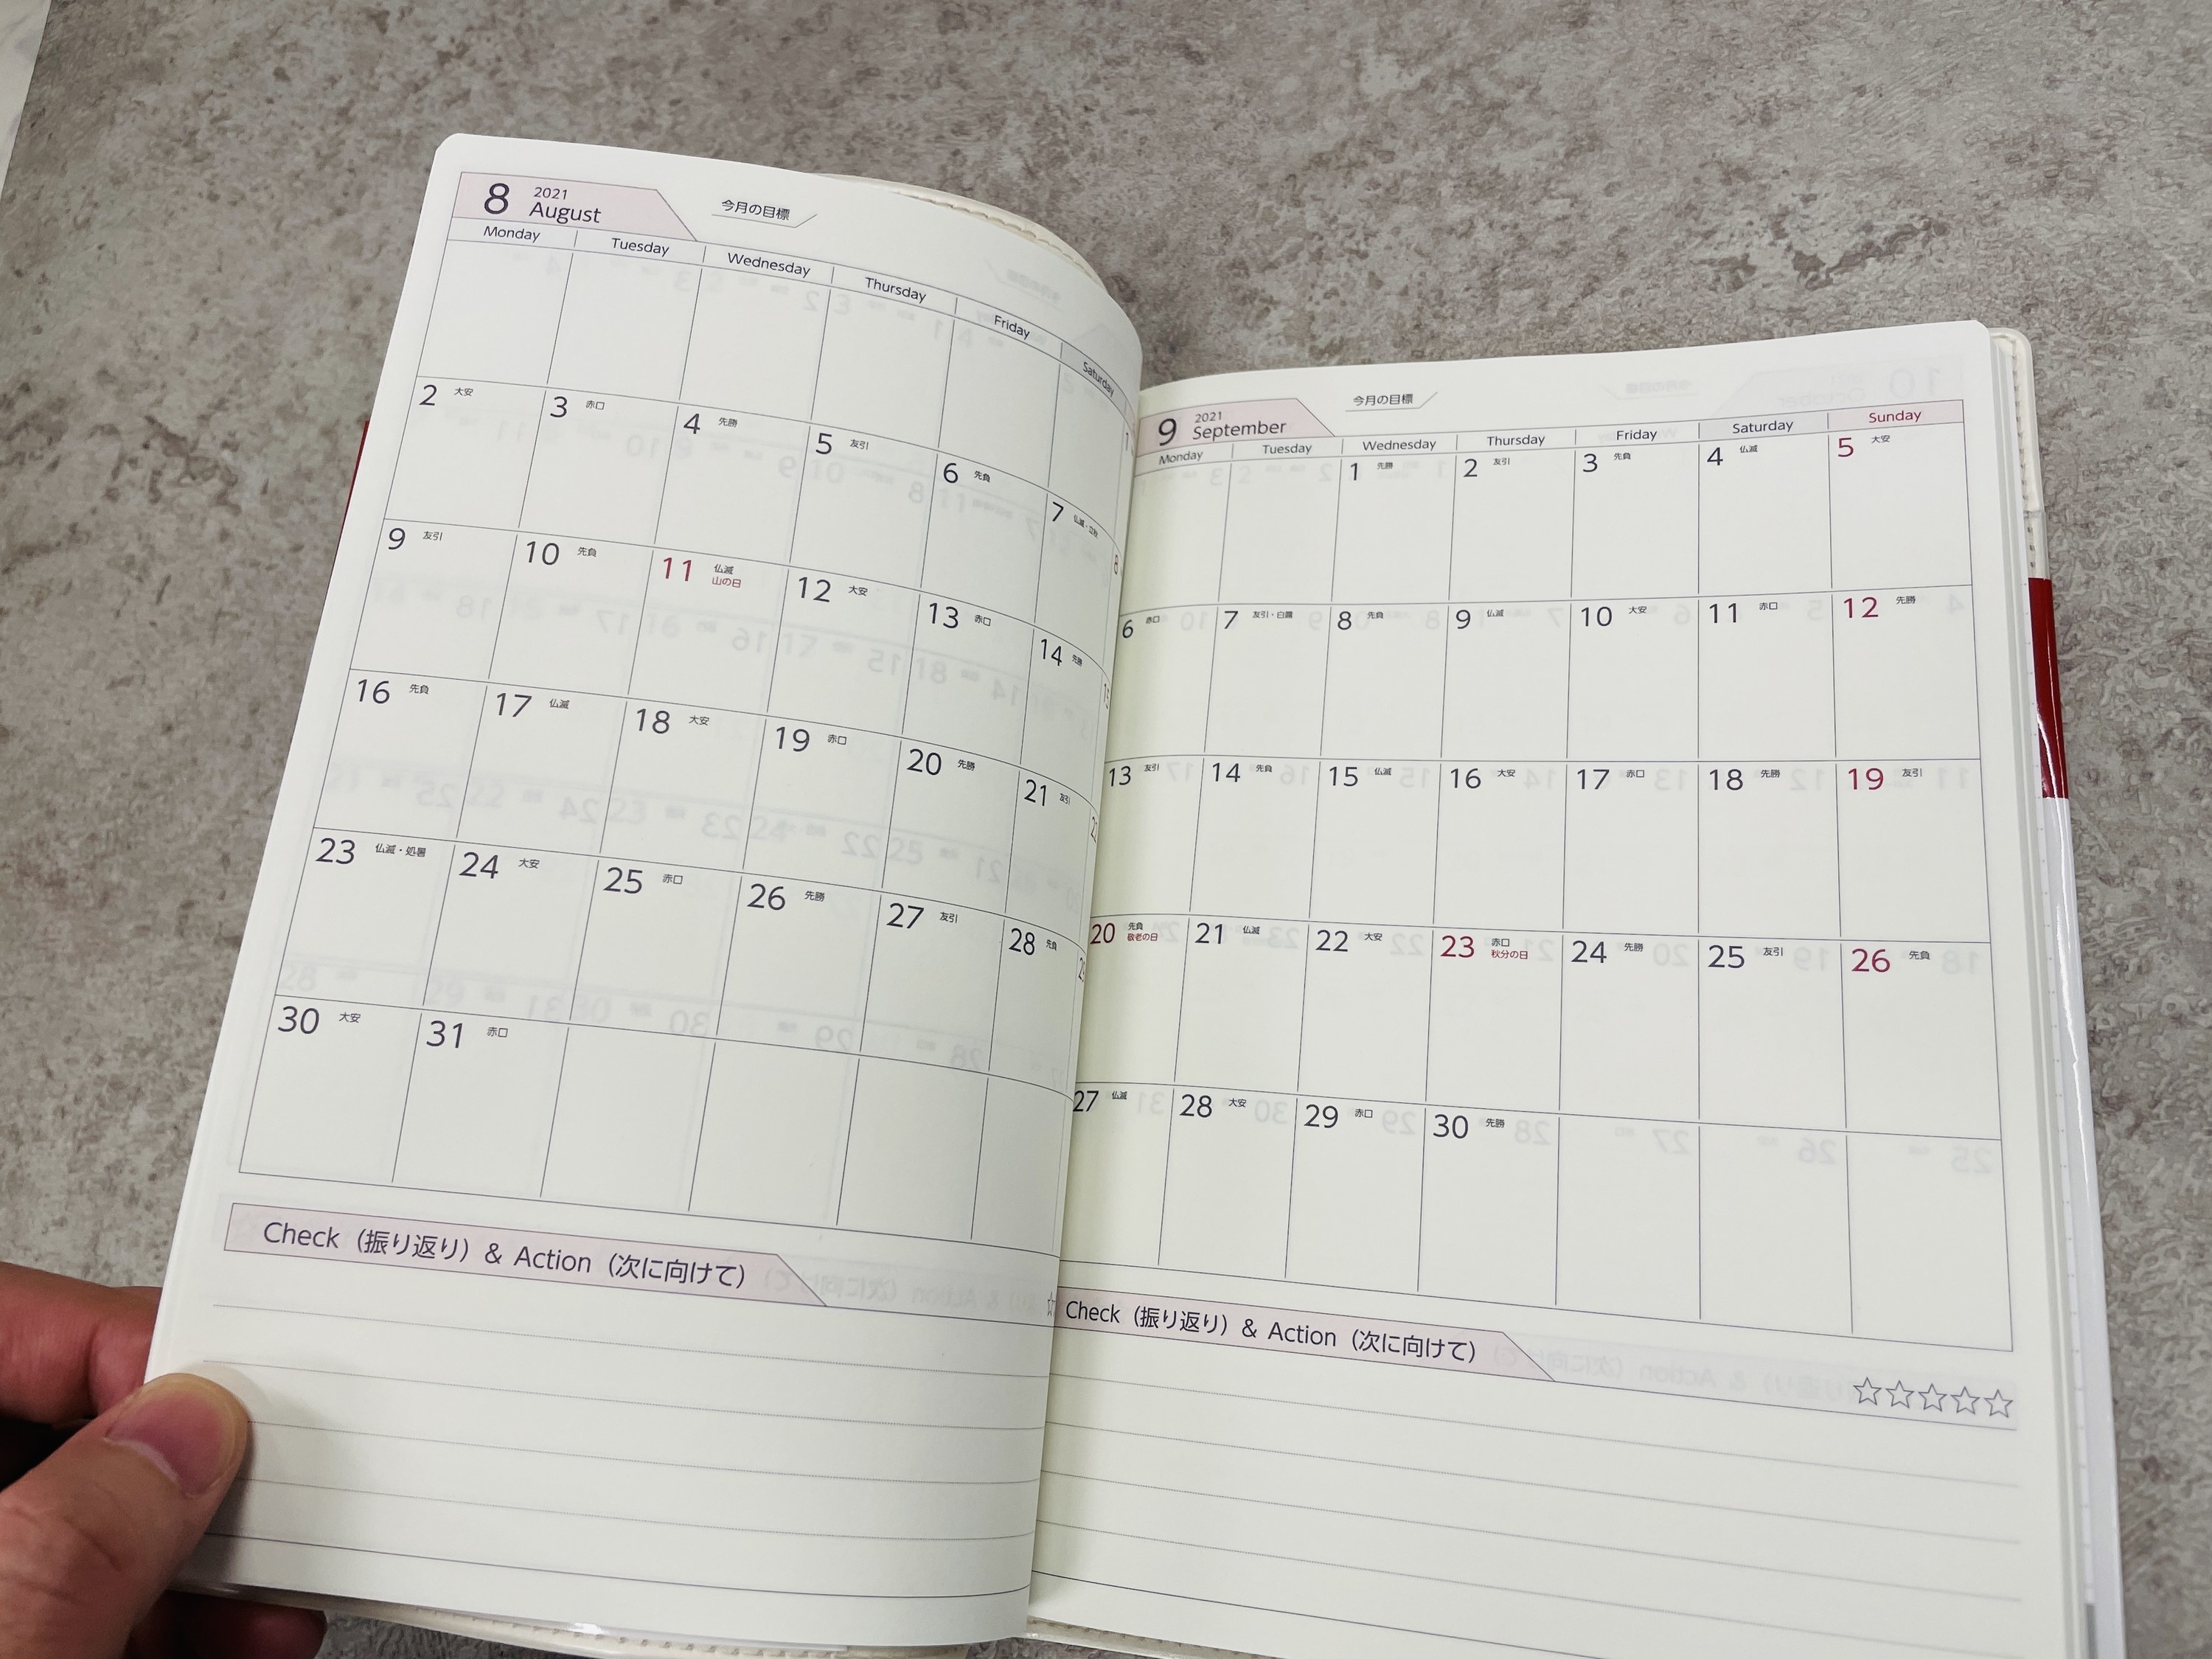 8 2021 August
今月の目標
Monday Tuesday Wednesday Thursday Friday Saturday
1
2 大安 3 赤口 4 先勝 5 友引 6 先負 7 仏滅・立秋 8
9 友引 10 先負 11 仏滅 山の日 12 大安 13 赤口 14 先勝
16 先負 17 仏滅 18 大安 19 赤口 20 先勝 21 友引
23 仏滅・処暑 24 大安 25 赤口 26 先勝 27 友引 28 先負
30 大安 31 赤口
Check（振り返り）& Action（次に向けて）
9 2021 September
今月の目標
Monday Tuesday Wednesday Thursday Friday Saturday Sunday
1 先勝 2 友引 3 先負 4 仏滅 5 大安
6 赤口 7 友引・白露 8 先負 9 仏滅 10 大安 11 赤口 12 先勝
13 友引 14 先負 15 仏滅 16 大安 17 赤口 18 先勝 19 友引
20 先負 敬老の日 21 仏滅 22 大安 23 赤口 秋分の日 24 先勝 25 友引 26 先負
27 仏滅 28 大安 29 赤口 30 先勝
Check（振り返り）& Action（次に向けて）
☆☆☆☆☆